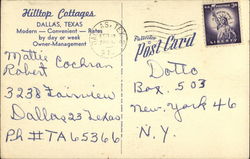 Hilltop Cottages
DALLAS, TEXAS
Modern — Convenient — Rates
by day or week
Owner-Management
Mattie Cochran
Robert
3238 Fairview
Dallas 23 Texas
Ph # TA65366
Post Card
Dotto
Box. 503
New York 46
N.Y.